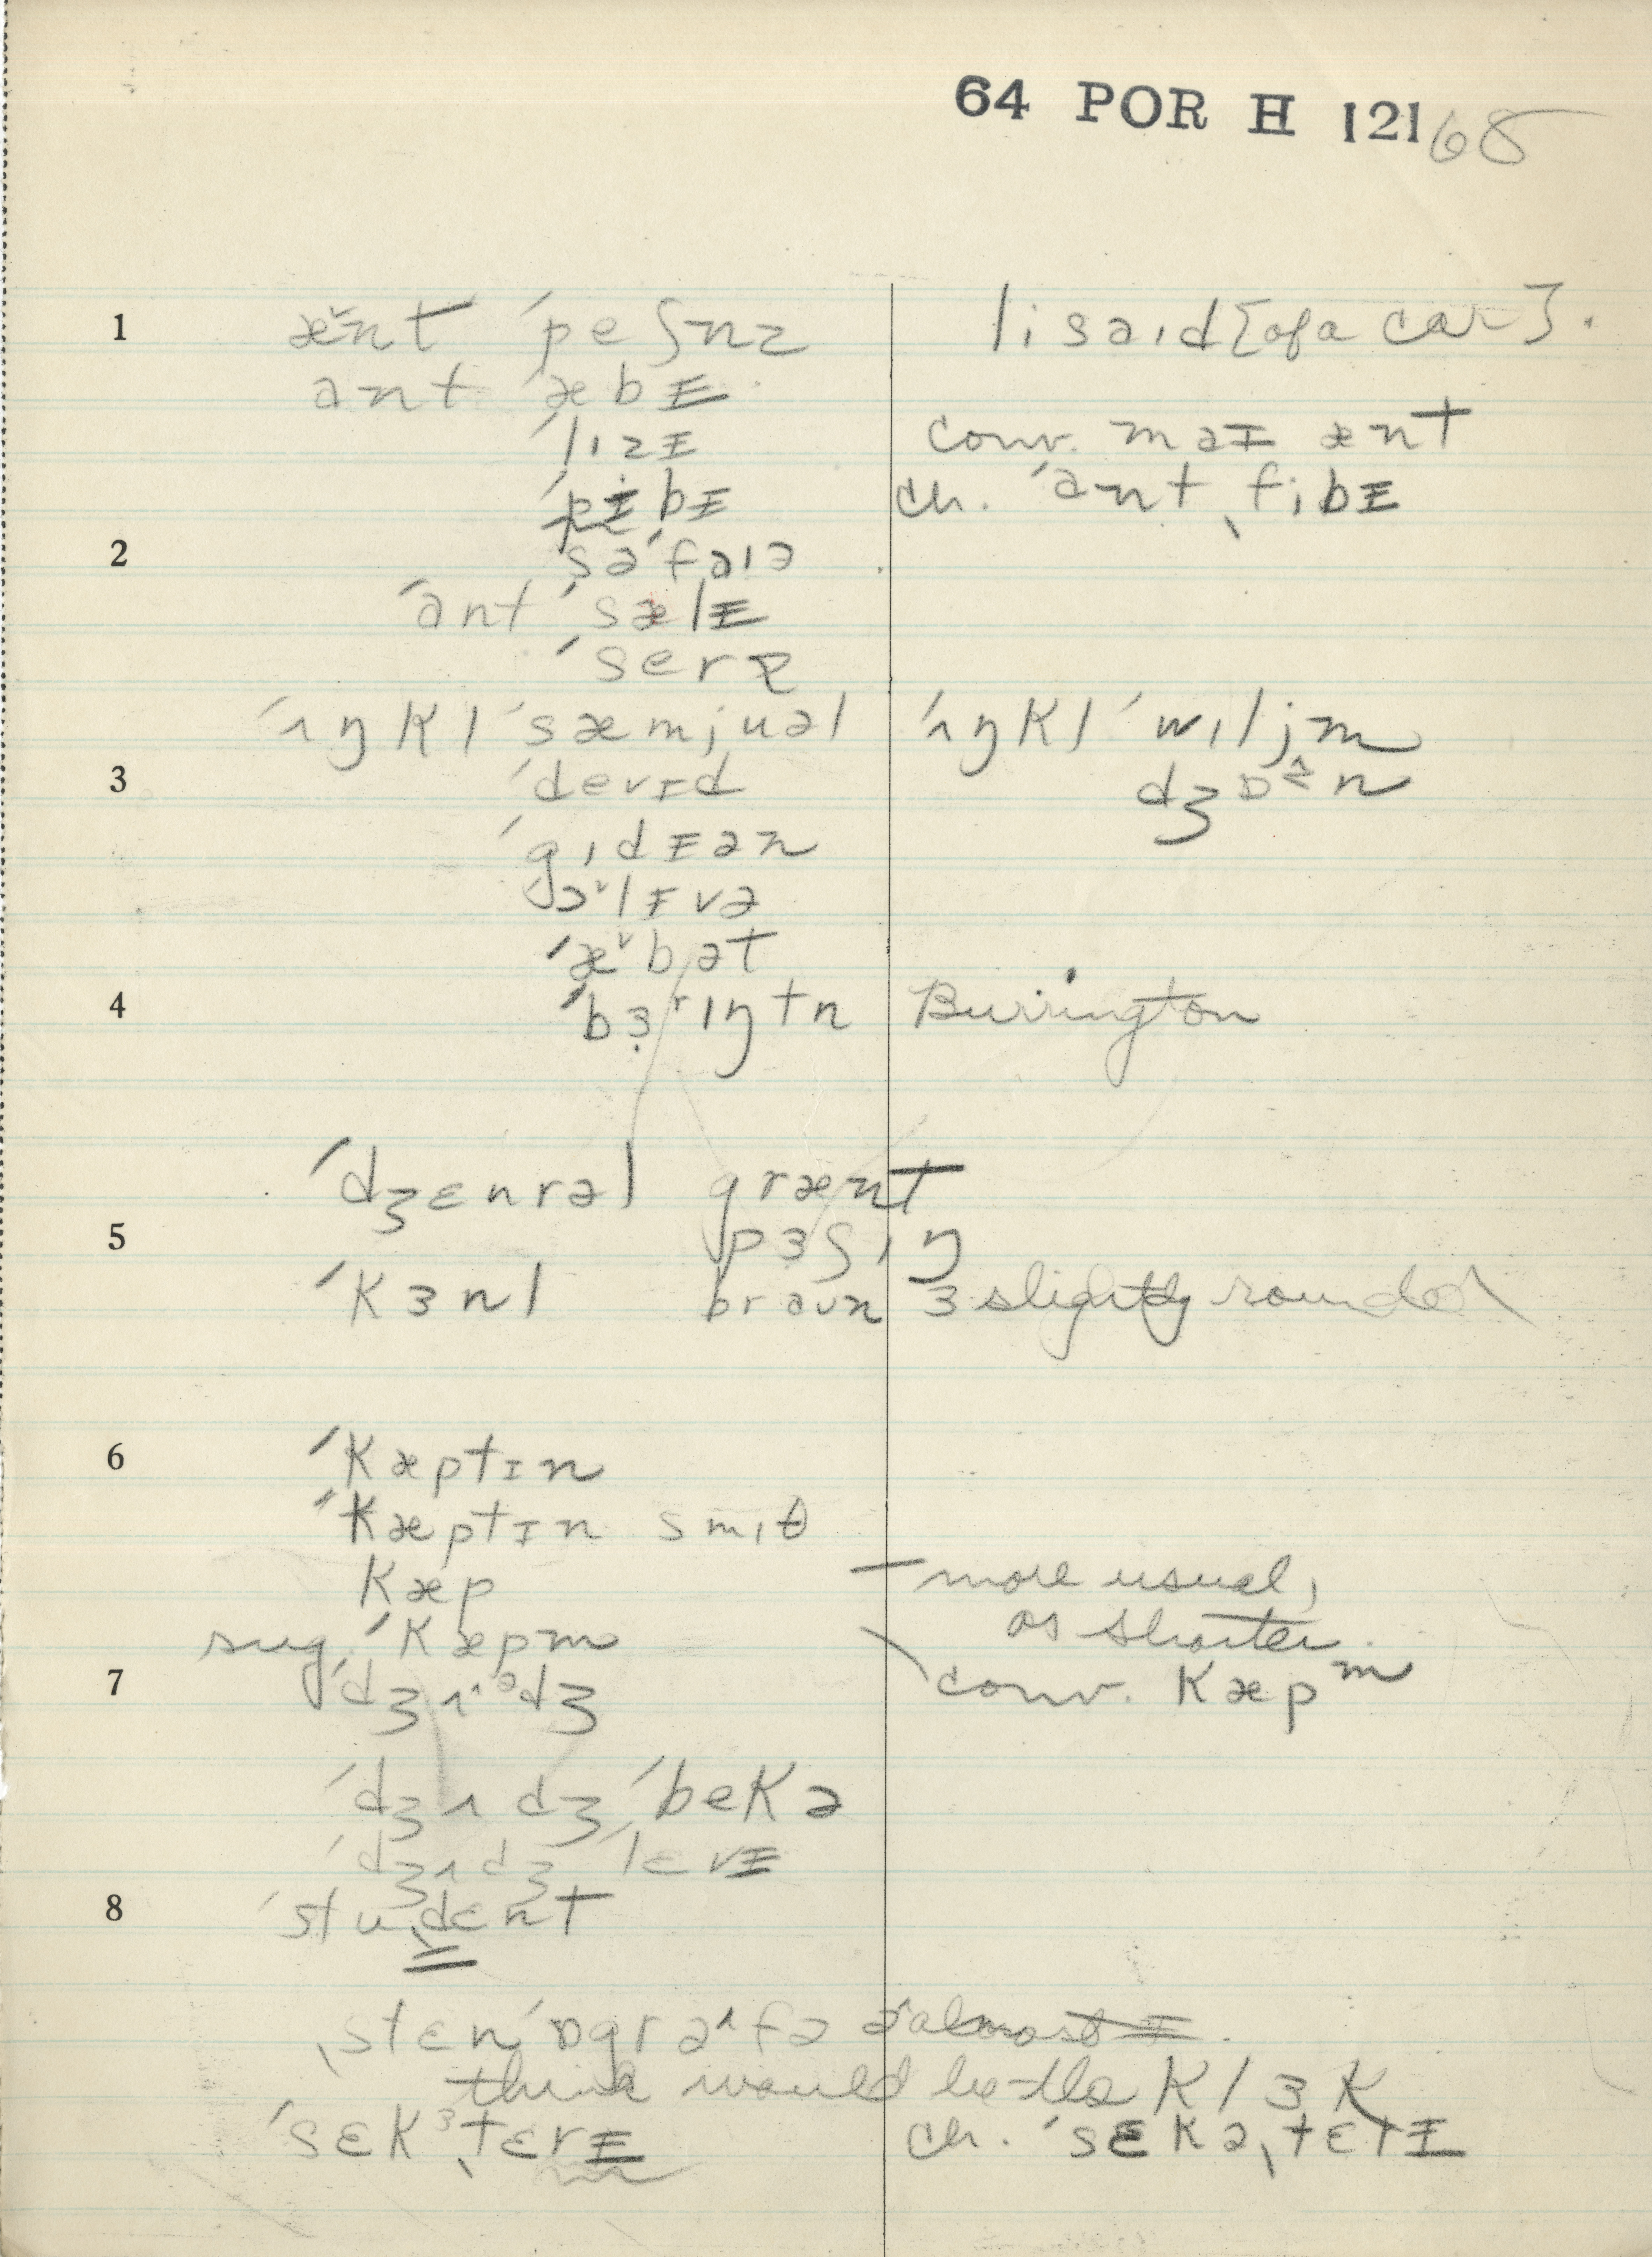 64 POR H 121 68
1 æ̌nt ˈpeʃnz lisaid {of a car}.
ant ˈæbɪ
ˈlizɪ conv. maɪ ænt
ˈpibɪ ch. ˈant ˌfibɪ
2 səˈfaiə
ˈant ˈsælɪ
ˈserə
ˈʌŋkl ˈsæmjuəl ˈʌŋkl ˈwiljm
3 ˈdevɪd dʒɒn
ˈgidɪən
ɔlɪvə
ˈæbət
4 ˈbɜrɪŋtn Burrington
ˈdʒɛnrəl grænt
5 pɜʃiŋ
ˈkɜnl braun ɜ slightly rounded
6 ˈkæptɪn
ˈkæptɪn smiθ
kæp — more usual,
as shorter.
sug. ˈkæpm
7 ˈdʒʌᵊdʒ conv. kæpᵐ
ˈdʒʌdʒ ˈbekə
ˈdʒʌdʒ ˈlɛvɪ
8 ˈstudɛnt
ˌstɛnˈɒgrəfə ə almost ɪ.
think would be the klɜk
ˈsɛkɜˌtɛrɪ ch. ˈsɛkəˌtɛrɪ